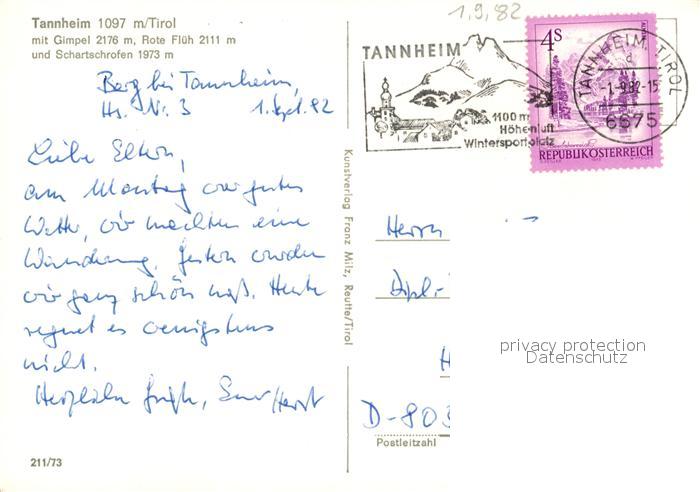 Tannheim 1097 m/Tirol
mit Gimpel 2176 m, Rote Flüh 2111 m
und Schartschrofen 1973 m
Berg bei Tannheim,
Hs. Nr. 3 1. Sept. 82
Liebe Eltern,
am Montag war gutes
Wetter, wir machten eine
Wanderung. Gestern wurden
wir ganz schön naß. Heute
regnet es wenigstens
nicht.
Herzliche Grüße, Euer Horst
211/73
Kunstverlag Franz Milz, Reutte/Tirol
1.9.82
TANNHEIM
1100 m
Höhenluft
Wintersportplatz
4S
REPUBLIK ÖSTERREICH
TANNHEIM, TIROL
d
-1.-9.82-15
6675
Herrn
Dipl.-
H
D-803
Postleitzahl
privacy protection
Datenschutz